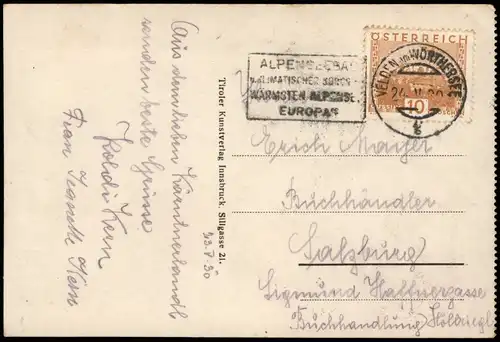 Aus dem lieben Kärntnerlandl
senden beste Grüsse
Poldi Kern
Frau Jeanette Kern
23.V.30
Tiroler Kunstverlag Innsbruck, Sillgasse 21.
ALPENSEEBAD
KLIMATISCHER
WÄRMSTEN ALPENSEE
EUROPAS
ÖSTERREICH
10
VELDEN AM WÖRTHERSEE
24. V. 30
Erich Mayer
Buchhändler
Salzburg
Sigmund Haffnergasse
Buchhandlung Höllrigl